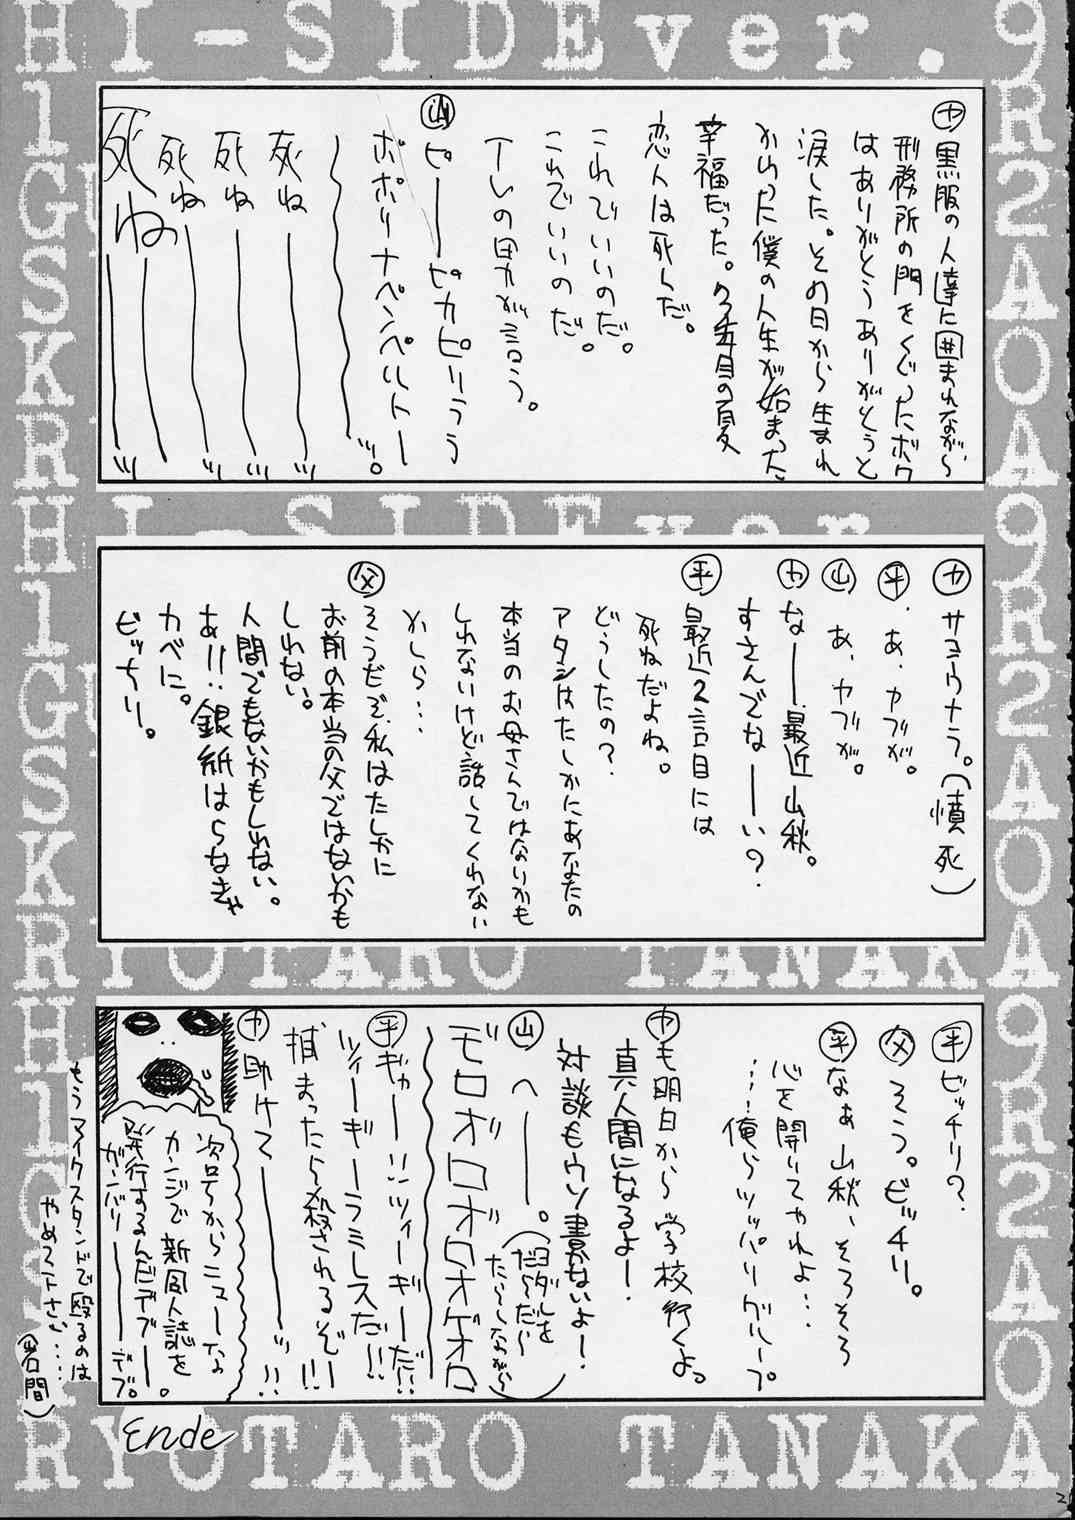 HI-SIDEver.
㋳黒服の人達に囲まれながら、
刑務所の門をくぐったボク
はありがとうありがとうと
涙した。その日から生まれ
かわった僕の人生が始まった
幸福だった。
恋人は死んだ。
これでいいのだ。
これでいいのだ。
ピーーピカピリララ
ポポリナペンペルトー
〜〜〜ッ。
死ね〜〜ッ
死ね〜〜ッ
死ね〜〜ッ
死ね〜〜ッ
HI-SIDEver.
サヨウナラ。(憤死)
㊥あ、カブが。
㊤あ、カブが。
なーー最近山秋。
すさんでなーーい?
平 最近2言目には
死ねだよね。
どうしたの?
アタシはたしかにあなたの
本当のお母さんではないかも
しれないけど話してくれない
かしら…
父 そうだぞ、私はたしかに
お前の本当の父ではないかも
しれない。
人間でもないかもしれない。
あ!!銀紙はらなきゃ
カベに。
ビッちり。
RYOTARO TANAKA
平 ビッチリ?
父 そう。ビッチリ。
平 なぁ山秋、そろそろ
心を開いてやれよ…
…俺らツッパリグループ。
も明日から学校行くよ。
真人間になるよー!
対談もウソ書かないよー!
山 へーーー。(ヨダレを
だ〜だ〜
たら〜しながら)
モロオロオロオゲオロ
平 ギャー!!ツィーギーだ!!
ツィーギーラミレスだ!!
捕まったら殺されるぞ!!!
助けてーーーッ!!
次号からニューな
カンジで新同人誌を
発行するんだデブー。
ガンバリーーーデブ。
もうマイクスタンドで殴るのは
やめて下さい…
(岩間)
Ende
RYOTARO TANAKA
2